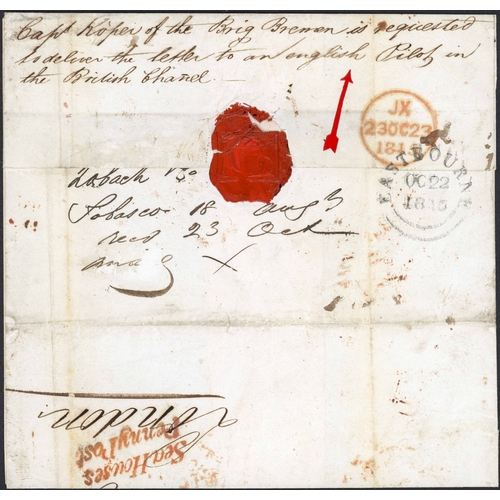 Capt Koper of the Brig Bremen is requested
to deliver the letter to an english Pilot in
the British Chanel
JX
23OC23
181
EASTBOURNE
OC 22
18
Tobasco 18 Aug
recd 23 Oct
X
London
Sea Houses
Penny Post